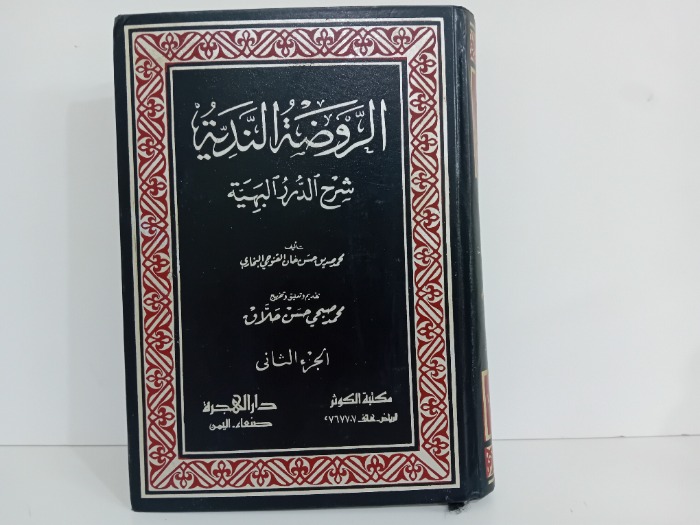 الرَّوضَةُ النَّديَّةُ
شرح الدُّرَرُ البَهيَّة
تأليف
محمد صديق حسن خان القنوجي البخاري
تقديم وتعليق وتخريج
محمد صبحي حسن حلَّاق
الجزء الثانى
مكتبة الكوثر
الرياض - هاتف ٢٧٦٧٧٠٧
دار الهجرة
صنعاء - اليمن